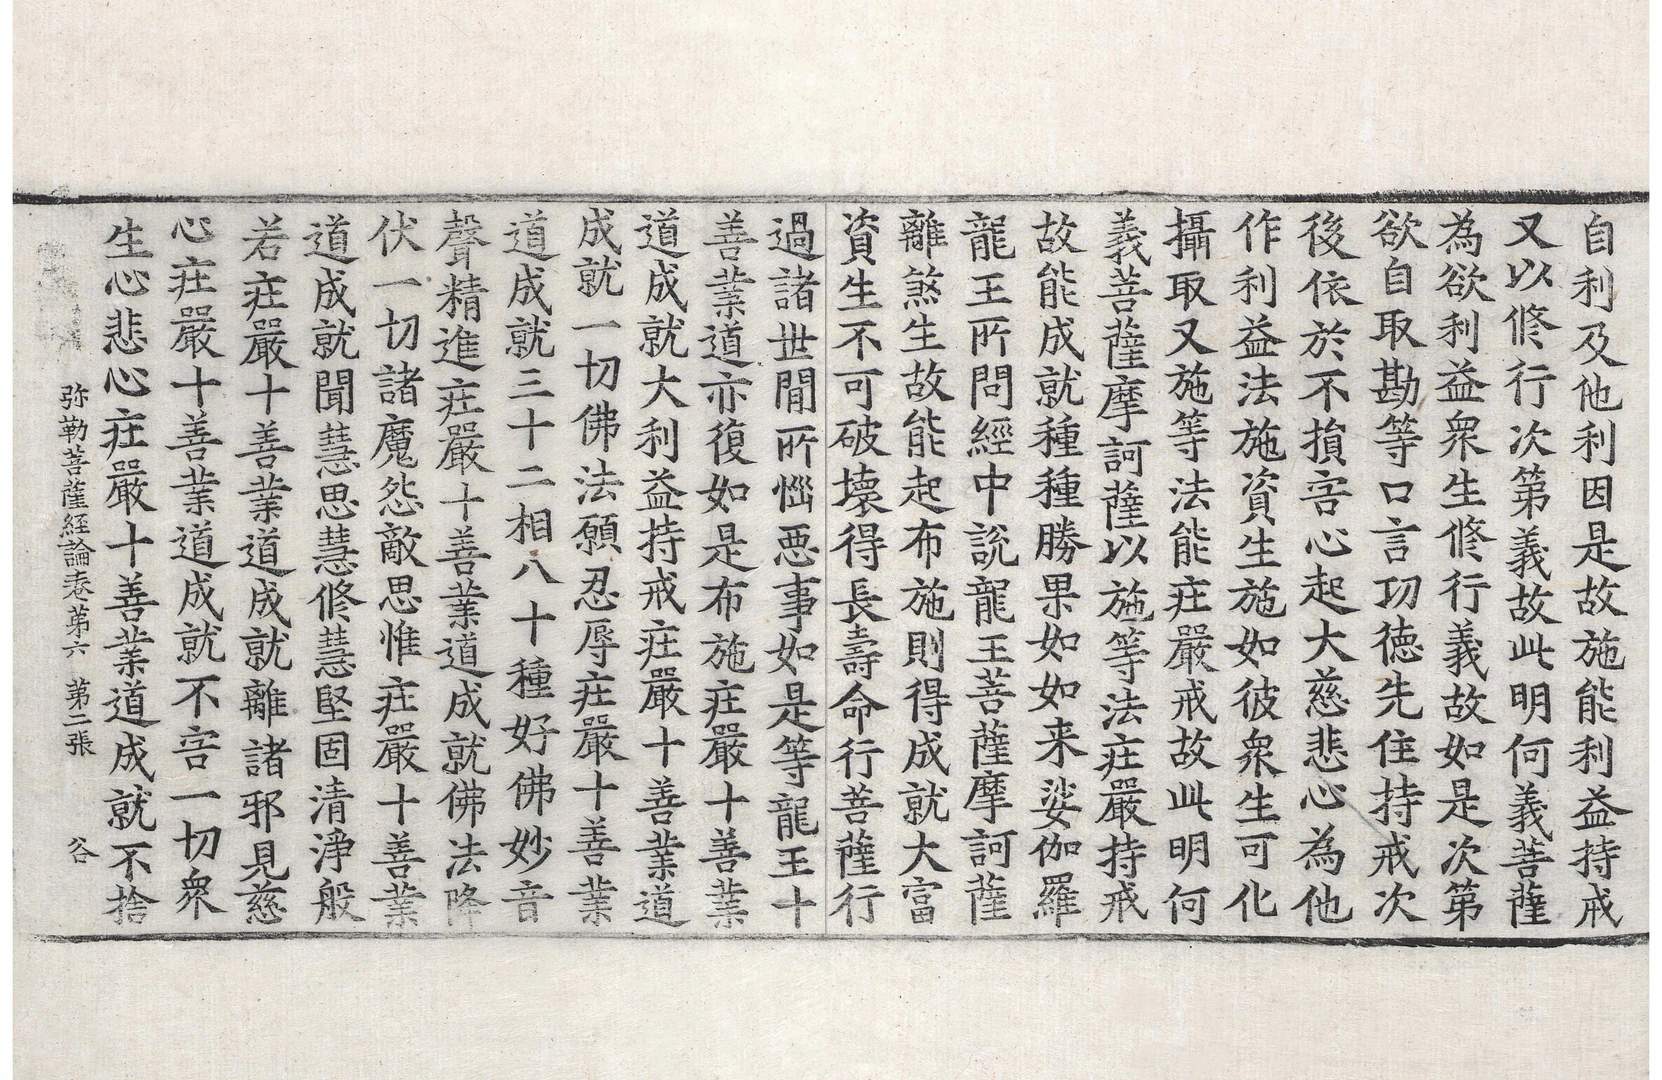 自利及他利因是故施能利益持戒
又以修行次第義故此明何義菩薩
為欲利益衆生修行義故如是次第
欲自取勘等口言功德先住持戒次
後依於不損害心起大慈悲心為他
作利益法施資生施如彼衆生可化
攝取又施等法能庄嚴戒故此明何
義菩薩摩訶薩以施等法庄嚴持戒
故能成就種種勝果如如来娑伽羅
龍王所問經中說龍王菩薩摩訶薩
離煞生故能起布施則得成就大富
資生不可破壞得長壽命行菩薩行
過諸世間所惱惡事如是等龍王十
善業道亦復如是布施庄嚴十善業
道成就大利益持戒庄嚴十善業道
成就一切佛法願忍辱庄嚴十善業
道成就三十二相八十種好佛妙音
聲精進庄嚴十善業道成就佛法降
伏一切諸魔怨敵思惟庄嚴十善業
道成就聞慧思慧修慧堅固清淨般
若庄嚴十善業道成就離諸邪見慈
心庄嚴十善業道成就不害一切衆
生心悲心庄嚴十善業道成就不捨
弥勒菩薩経論卷第六 第二張 谷